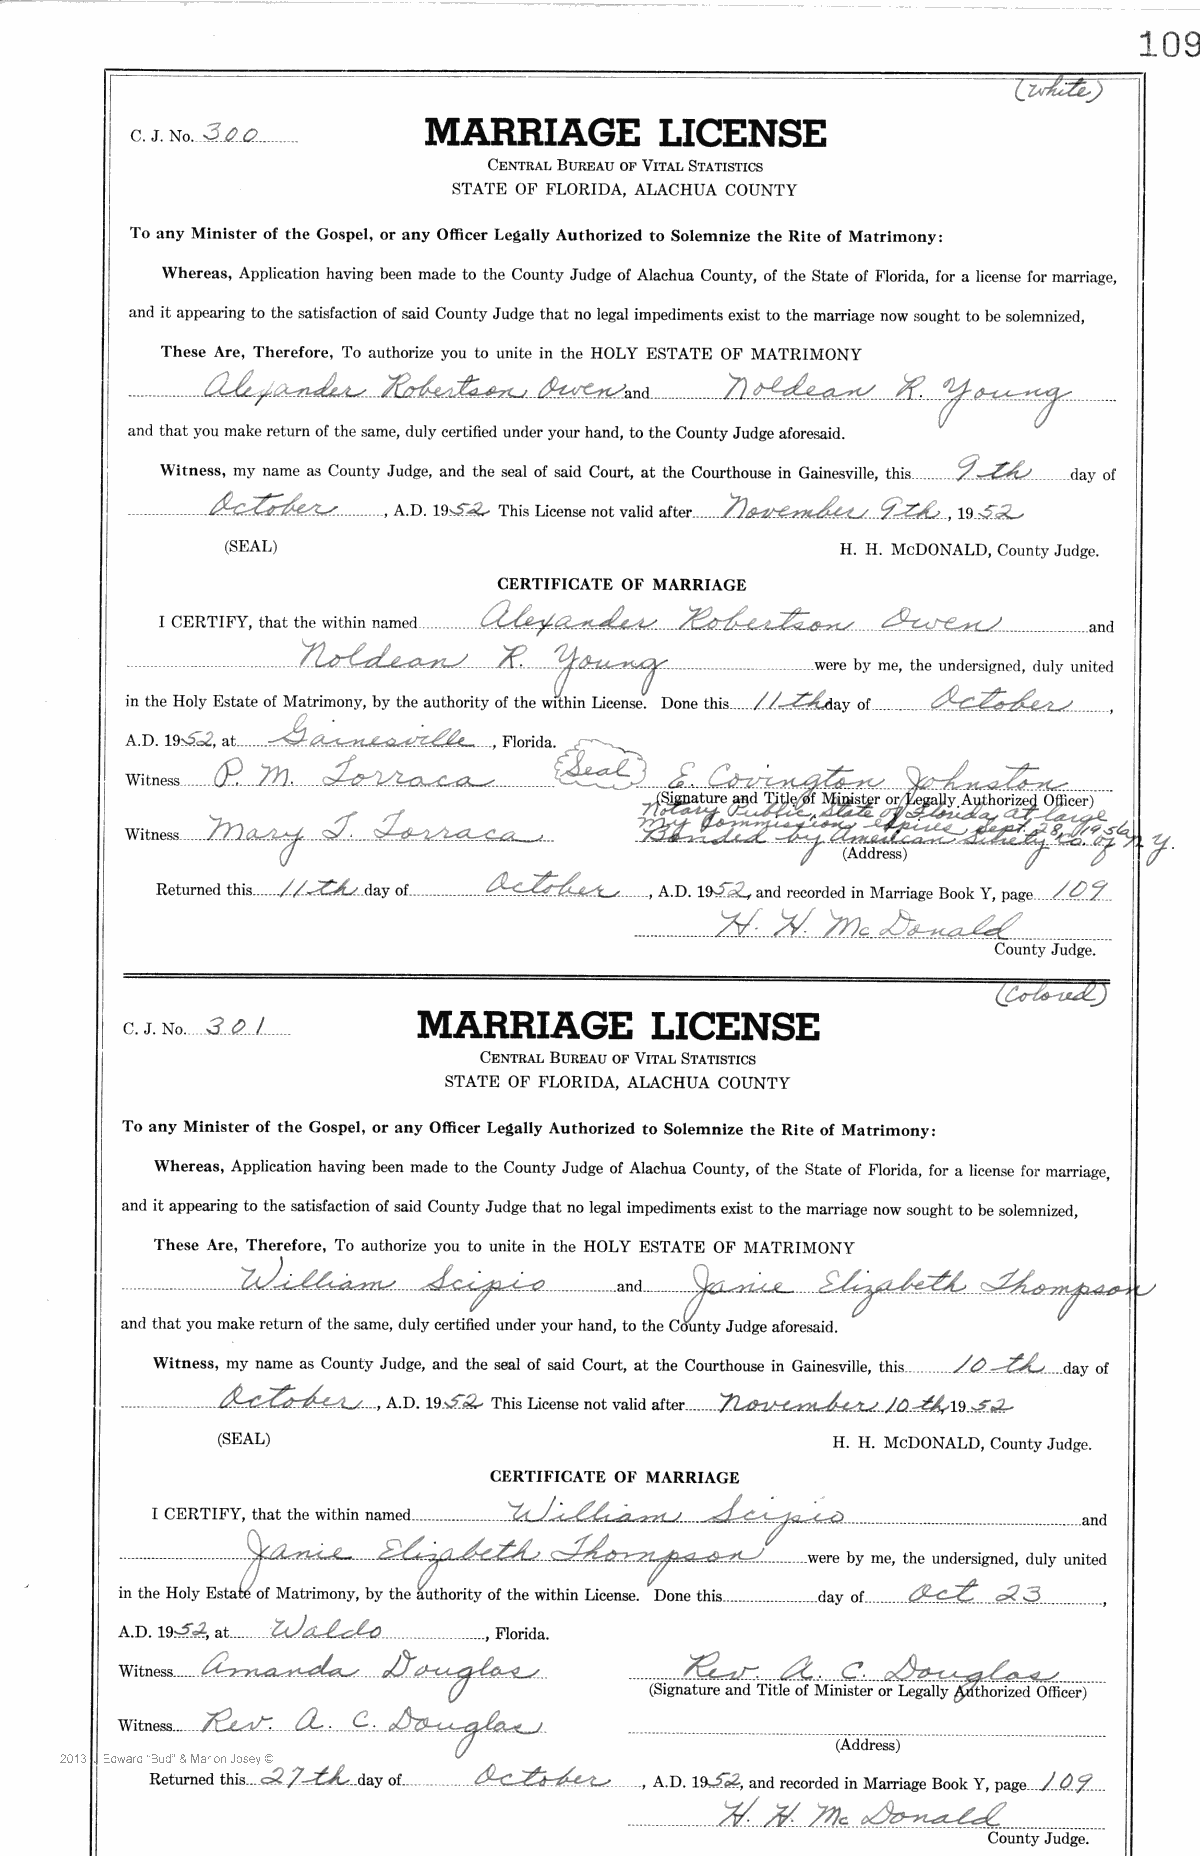 109
(White)
C. J. No. 300
MARRIAGE LICENSE
CENTRAL BUREAU OF VITAL STATISTICS
STATE OF FLORIDA, ALACHUA COUNTY
To any Minister of the Gospel, or any Officer Legally Authorized to Solemnize the Rite of Matrimony:
Whereas, Application having been made to the County Judge of Alachua County, of the State of Florida, for a license for marriage,
and it appearing to the satisfaction of said County Judge that no legal impediments exist to the marriage now sought to be solemnized,
These Are, Therefore, To authorize you to unite in the HOLY ESTATE OF MATRIMONY
Alexander Robertson Owen and Noldean R. Young
and that you make return of the same, duly certified under your hand, to the County Judge aforesaid.
Witness, my name as County Judge, and the seal of said Court, at the Courthouse in Gainesville, this 9th day of
October, A.D. 1952 This License not valid after November 9th, 1952
(SEAL) H. H. McDONALD, County Judge.
CERTIFICATE OF MARRIAGE
I CERTIFY, that the within named Alexander Robertson Owen and
Noldean R. Young were by me, the undersigned, duly united
in the Holy Estate of Matrimony, by the authority of the within License. Done this 11th day of October,
A.D. 1952, at Gainesville, Florida.
Witness P. M. Torraca (Seal) E. Covington Johnston
(Signature and Title of Minister or Legally Authorized Officer)
Notary Public, State of Florida at large
My Commission expires Sept. 28, 1956
Witness Mary T. Torraca Bonded by American Surety Co. of N.Y.
(Address)
Returned this 11th day of October, A.D. 1952, and recorded in Marriage Book Y, page 109
H. H. McDonald
County Judge.
(Colored)
C. J. No. 301
MARRIAGE LICENSE
CENTRAL BUREAU OF VITAL STATISTICS
STATE OF FLORIDA, ALACHUA COUNTY
To any Minister of the Gospel, or any Officer Legally Authorized to Solemnize the Rite of Matrimony:
Whereas, Application having been made to the County Judge of Alachua County, of the State of Florida, for a license for marriage,
and it appearing to the satisfaction of said County Judge that no legal impediments exist to the marriage now sought to be solemnized,
These Are, Therefore, To authorize you to unite in the HOLY ESTATE OF MATRIMONY
William Scipio and Janie Elizabeth Thompson
and that you make return of the same, duly certified under your hand, to the County Judge aforesaid.
Witness, my name as County Judge, and the seal of said Court, at the Courthouse in Gainesville, this 10th day of
October, A.D. 1952 This License not valid after November 10th, 1952
(SEAL) H. H. McDONALD, County Judge.
CERTIFICATE OF MARRIAGE
I CERTIFY, that the within named William Scipio and
Janie Elizabeth Thompson were by me, the undersigned, duly united
in the Holy Estate of Matrimony, by the authority of the within License. Done this day of Oct 23,
A.D. 1952, at Waldo, Florida.
Witness Amanda Douglas Rev. A. C. Douglas
(Signature and Title of Minister or Legally Authorized Officer)
Witness Rev. A. C. Douglas
(Address)
2013 J. Edward "Bud" & Marion Josey ©
Returned this 27th day of October, A.D. 1952, and recorded in Marriage Book Y, page 109
H. H. McDonald
County Judge.